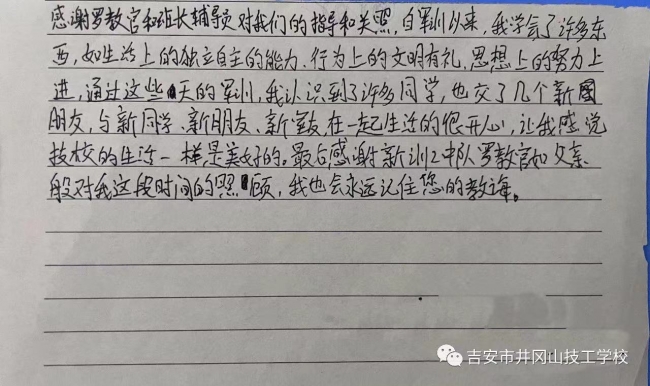 感谢罗教官和班长辅导员对我们的指导和关照,自军训以来,我学会了许多东
西,如生活上的独立自主的能力、行为上的文明有礼,思想上的努力上
进,通过这些天的军训,我认识到了许多同学,也交了几个新
朋友,与新同学、新朋友、新室友,在一起生活的很开心,让我感觉
技校的生活一样是美好的。最后感谢新训2中队罗教官如父亲
般对我这段时间的照顾,我也会永远记住您的教诲。
吉安市井冈山技工学校